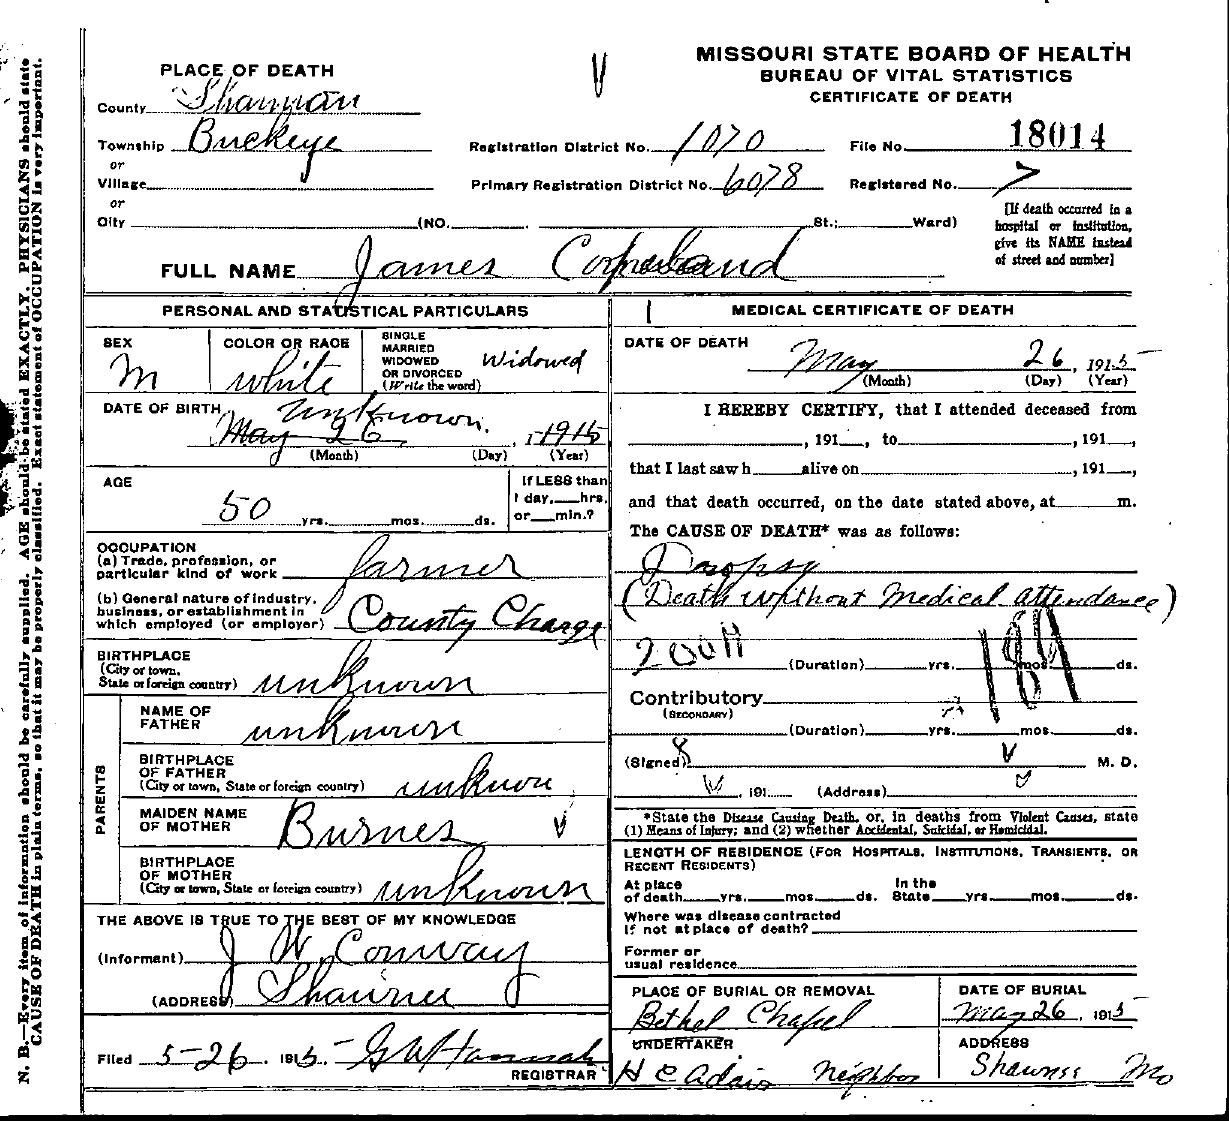 MISSOURI STATE BOARD OF HEALTH
BUREAU OF VITAL STATISTICS
CERTIFICATE OF DEATH
PLACE OF DEATH
County Shannon
Township Buckeye
or
Village
or
City (NO. St.; Ward)
Registration District No. 1070
File No. 18014
Primary Registration District No. 6078
Registered No. 7
[If death occurred in a
hospital or institution,
give its NAME instead
of street and number]
FULL NAME James Copeland
PERSONAL AND STATISTICAL PARTICULARS
SEX
M
COLOR OR RACE
white
SINGLE
MARRIED
WIDOWED
OR DIVORCED
(Write the word)
Widowed
DATE OF BIRTH
unknown.
May 26, 1915
(Month) (Day) (Year)
AGE
50 yrs. mos. ds.
If LESS than
1 day, hrs.
or min.?
OCCUPATION
(a) Trade, profession, or
particular kind of work farmer
(b) General nature of industry,
business, or establishment in
which employed (or employer) County Charge
BIRTHPLACE
(City or town,
State or foreign country) unknown
PARENTS
NAME OF
FATHER
unknown
BIRTHPLACE
OF FATHER
(City or town, State or foreign country) unknown
MAIDEN NAME
OF MOTHER Burnes
BIRTHPLACE
OF MOTHER
(City or town, State or foreign country) unknown
THE ABOVE IS TRUE TO THE BEST OF MY KNOWLEDGE
(Informant) J W Conway
(ADDRESS) Shawnee
Filed 5-26, 1915 G W Hannah
REGISTRAR
MEDICAL CERTIFICATE OF DEATH
DATE OF DEATH
May 26, 1915
(Month) (Day) (Year)
I HEREBY CERTIFY, that I attended deceased from
, 191 , to , 191 ,
that I last saw h alive on , 191 ,
and that death occurred, on the date stated above, at m.
The CAUSE OF DEATH* was as follows:
Dropsy
(Death without Medical attendance)
200H 189
(Duration) yrs. mos. ds.
Contributory
(SECONDARY)
(Duration) yrs. mos. ds.
(Signed) M. D.
, 191 (Address)
*State the Disease Causing Death, or, in deaths from Violent Causes, state
(1) Means of Injury; and (2) whether Accidental, Suicidal, or Homicidal.
LENGTH OF RESIDENCE (FOR HOSPITALS, INSTITUTIONS, TRANSIENTS, OR
RECENT RESIDENTS)
At place In the
of death yrs. mos. ds. State yrs. mos. ds.
Where was disease contracted
if not at place of death?
Former or
usual residence
PLACE OF BURIAL OR REMOVAL
Bethel Chapel
DATE OF BURIAL
May 26, 1915
UNDERTAKER
H C Adair Neighbor
ADDRESS
Shawnee Mo
N. B.—Every item of information should be carefully supplied. AGE should be stated EXACTLY. PHYSICIANS should state
CAUSE OF DEATH in plain terms, so that it may be properly classified. Exact statement of OCCUPATION is very important.